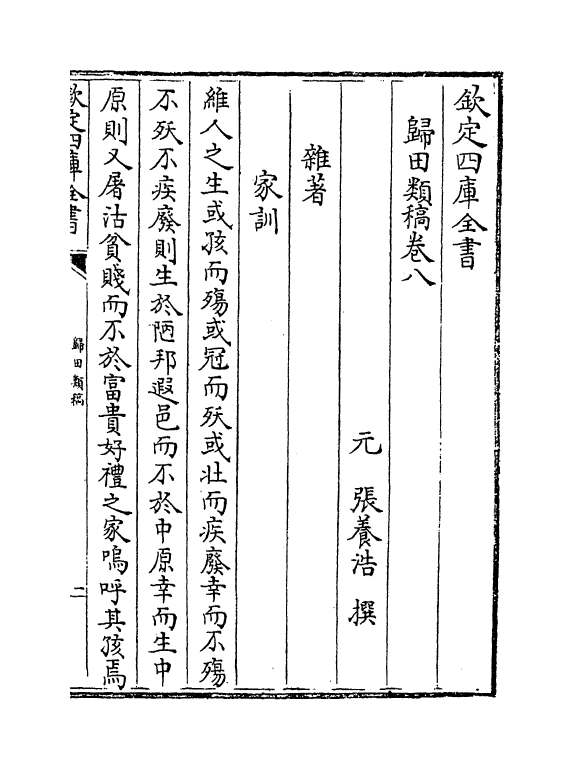 欽定四庫全書
歸田類稿卷八
元 張養浩 撰
雜著
家訓
維人之生或孩而殤或冠而殀或壯而疾廢幸而不殤
不殀不疾廢則生於陋邦遐邑而不於中原幸而生中
原則又屠沽貧賤而不於富貴好禮之家嗚呼其孩焉
欽定四庫全書
歸田類稿